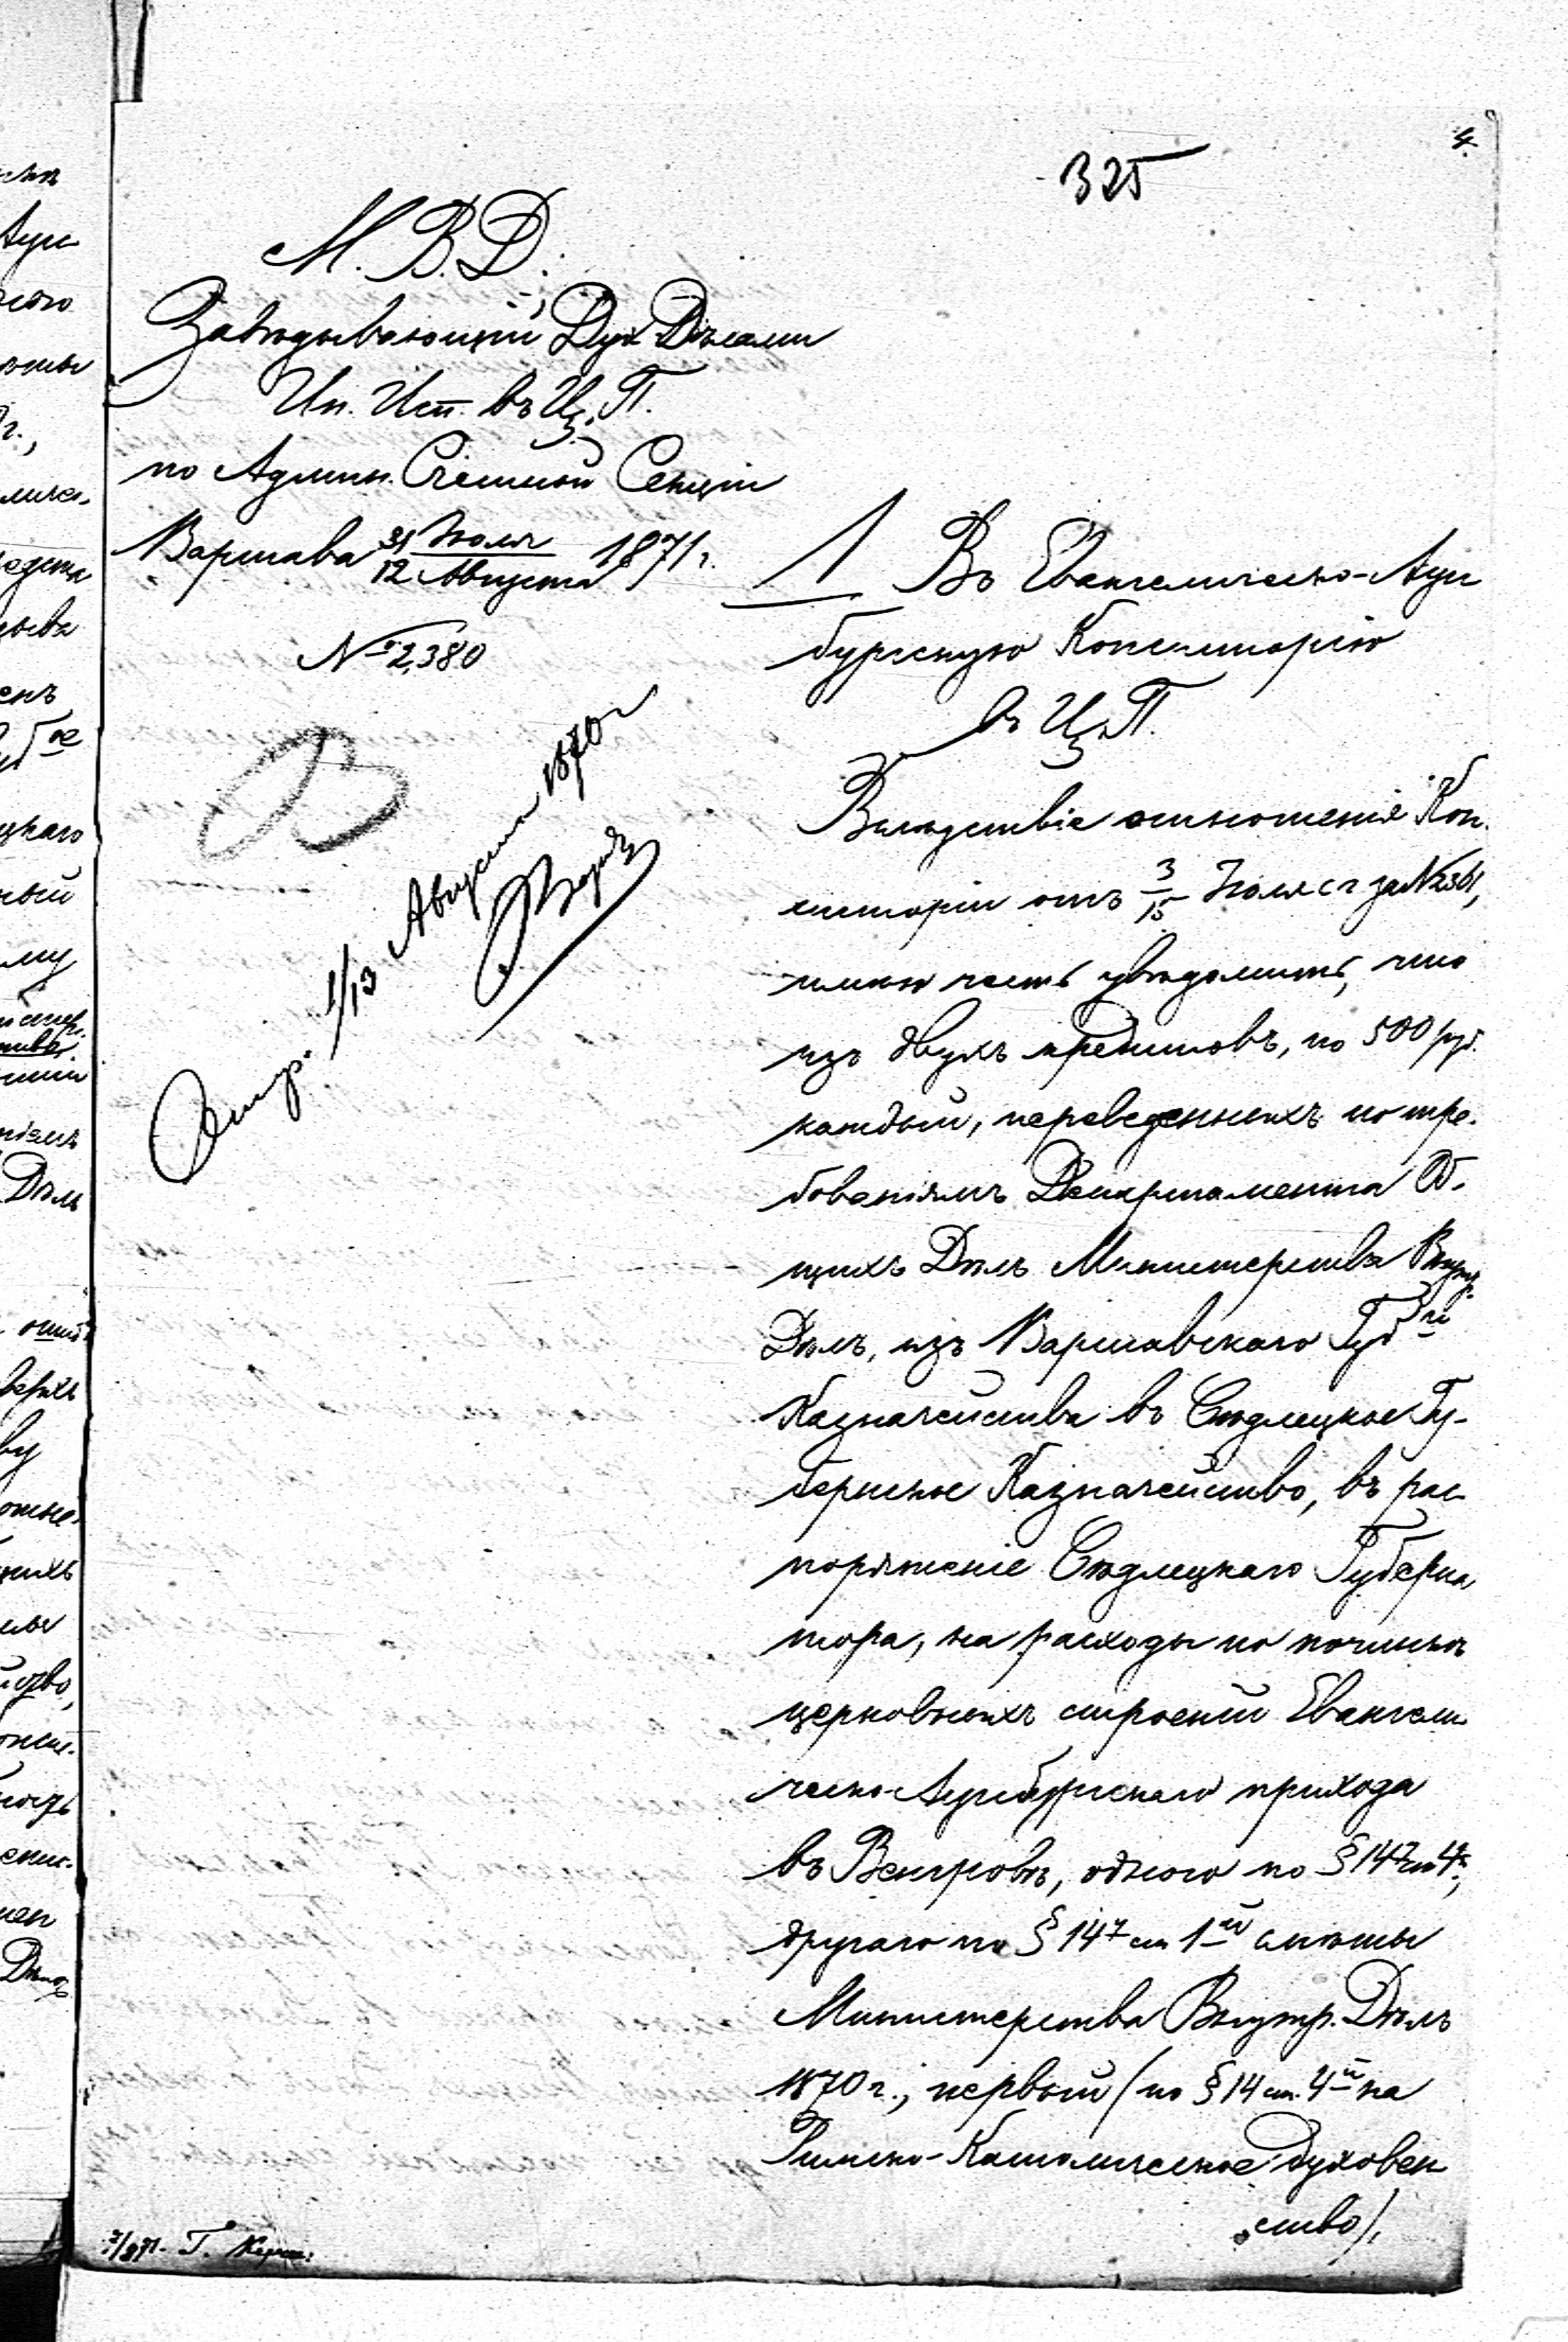 325
4.
М. В. Д.
Завѣдывающій Дух. Дѣлами
Ин. Исп. въ Ц. П.
по Админ. Счетной Секціи
Варшава 31 Іюля / 12 Августа 1871 г.
№ 2,380
Въ Евангелическо-Аугс
бургскую Консисторію
въ Ц. П.
Вслѣдствіе отношенія Кон-
систоріи отъ 3/15 Іюля с г за № 2361,
имѣю честь увѣдомить, что
изъ двухъ кредитовъ, по 500 руб.
каждый, переведенныхъ по тре-
бованіямъ Департамента Об-
щихъ Дѣлъ Министерства Внутр.
Дѣлъ, изъ Варшавскаго Губ го
Казначейства въ Сѣдлецкое Гу-
бернское Казначейство, въ рас
поряженіе Сѣдлецкаго Губерна
тора, на расходы по починкѣ
церковныхъ строеній Евангели
ческо-Аугсбургскаго прихода
въ Венгровѣ, одного по § 14 ст 4й,
другаго по § 14 ст 1й смѣты
Министерства Внутр. Дѣлъ
1870 г., первый (по § 14 ст. 4й на
Римско-Католическое духовен
ство),
1/13 Августа 1870 г